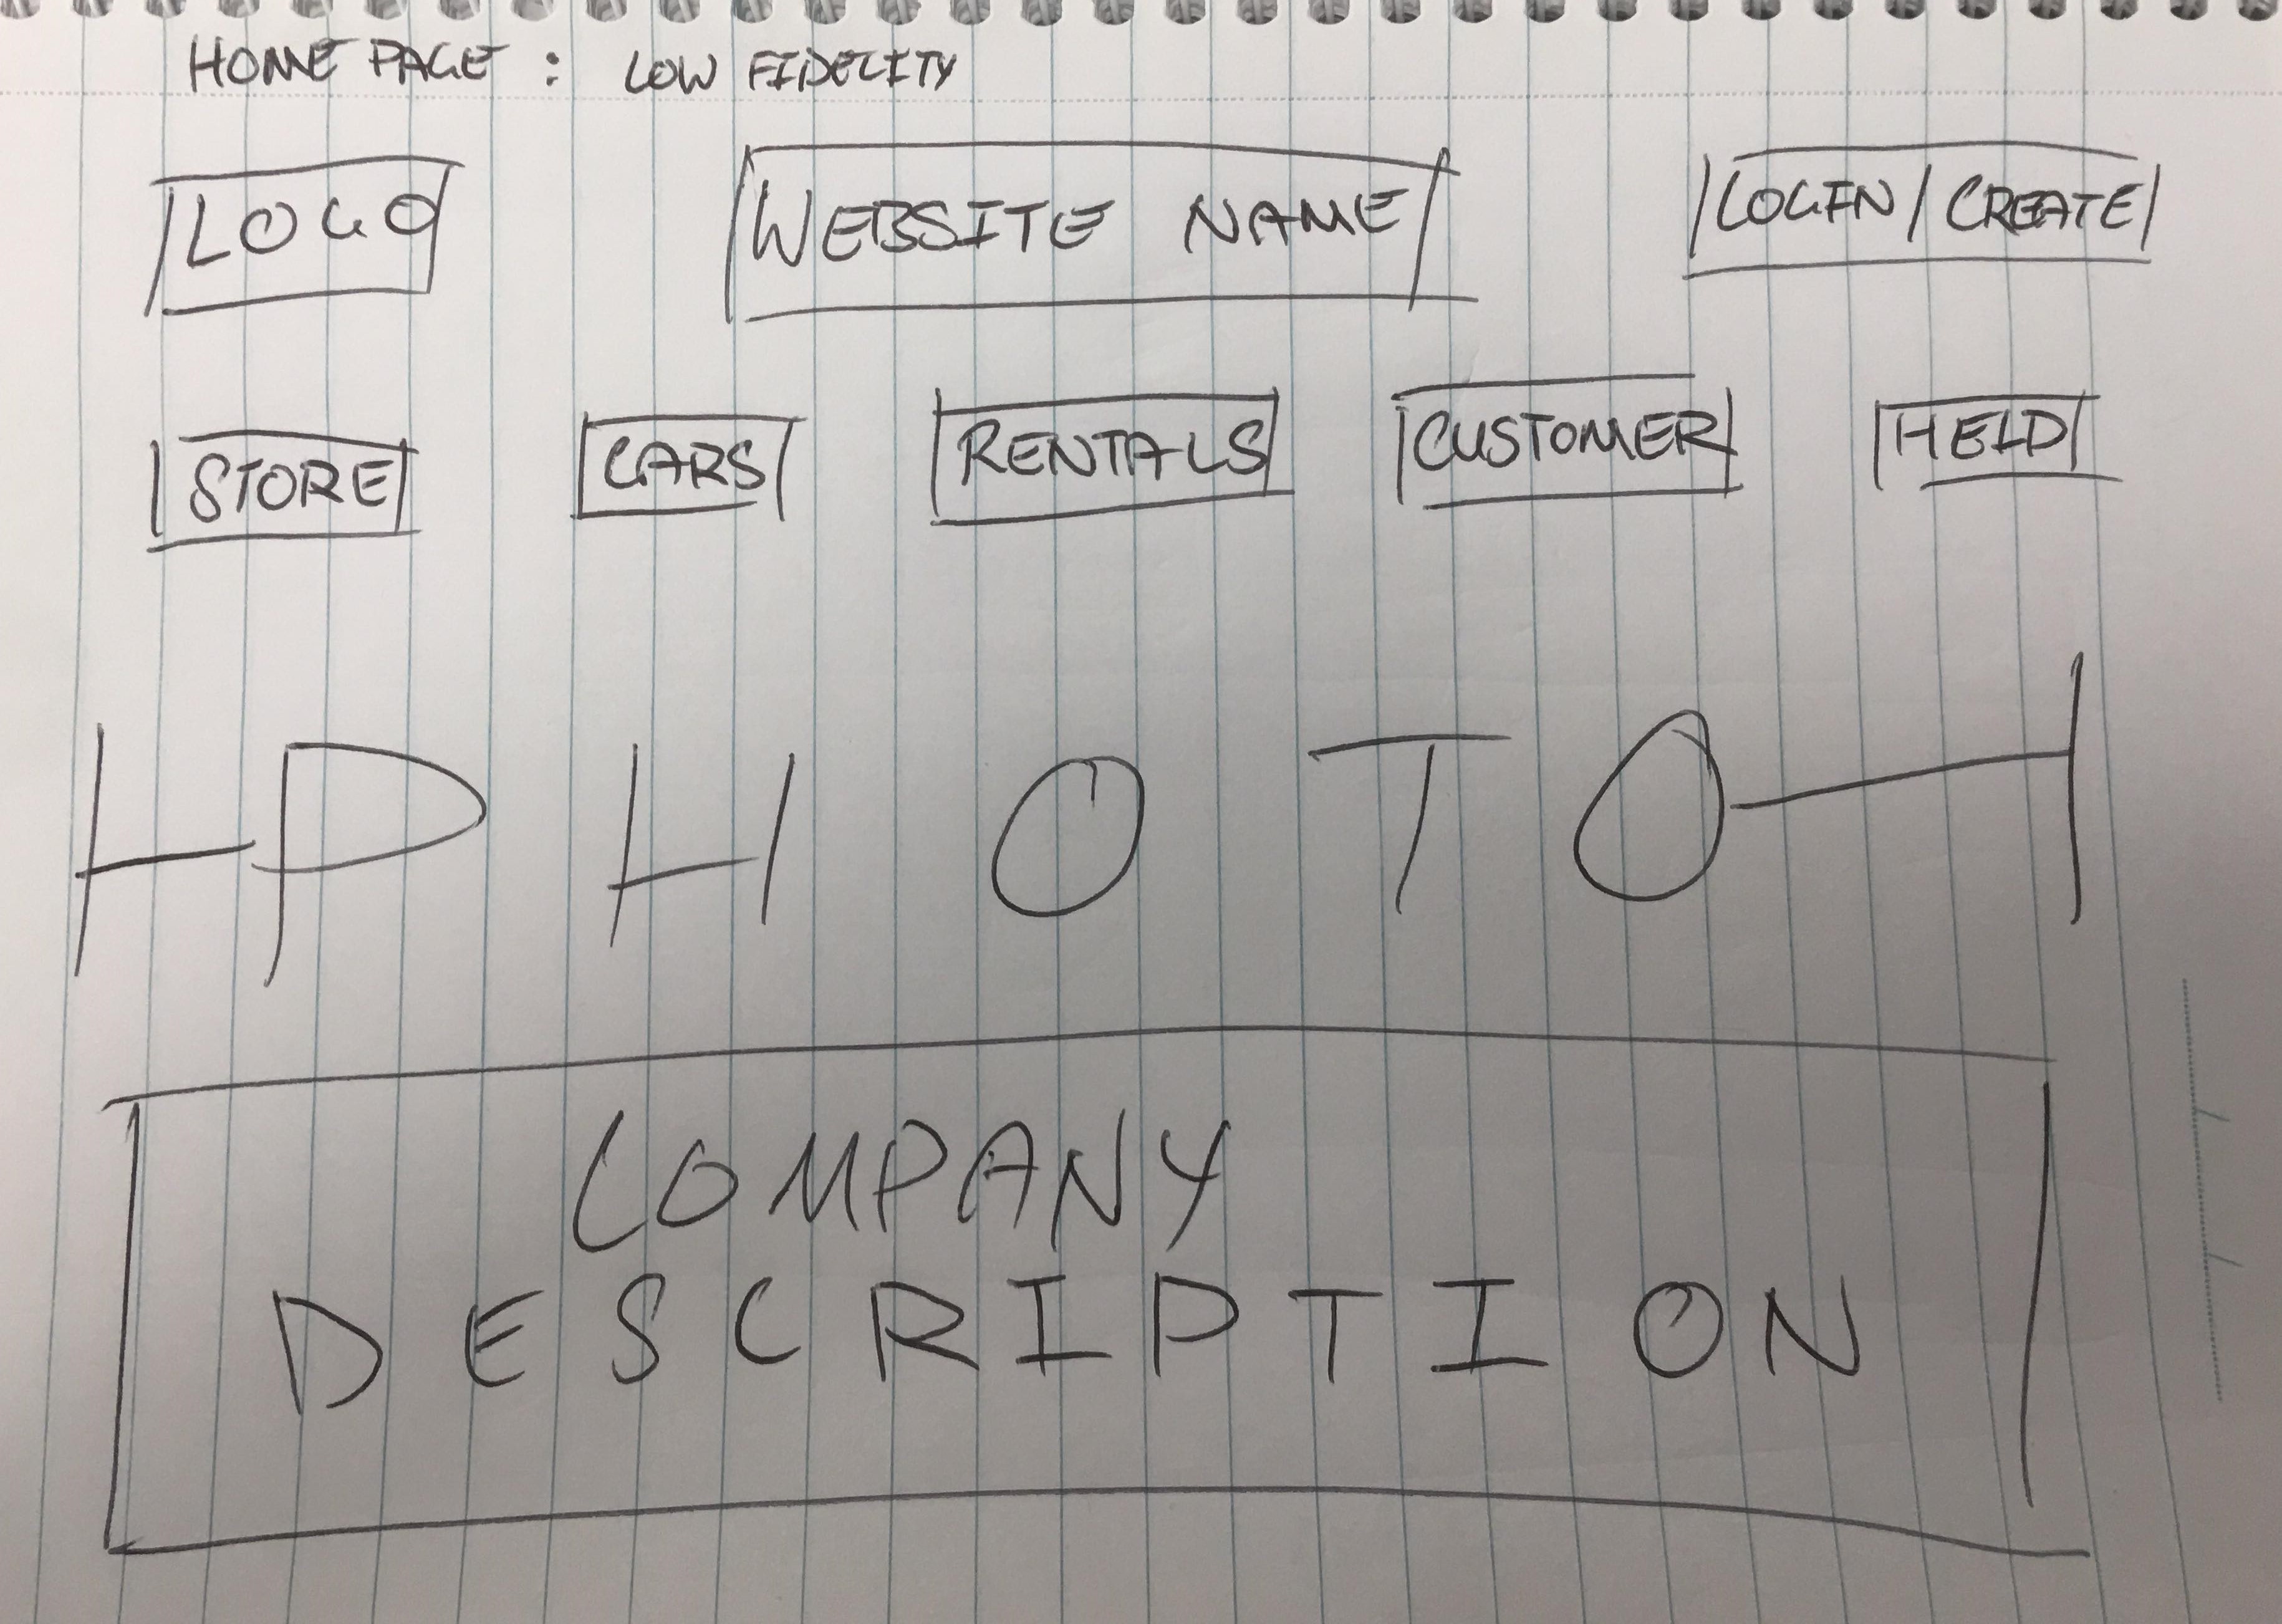 HOME PAGE : LOW FIDELITY
LOGO WEBSITE NAME LOGIN / CREATE
STORE CARS RENTALS CUSTOMER HELD
PHOTO
COMPANY
DESCRIPTION